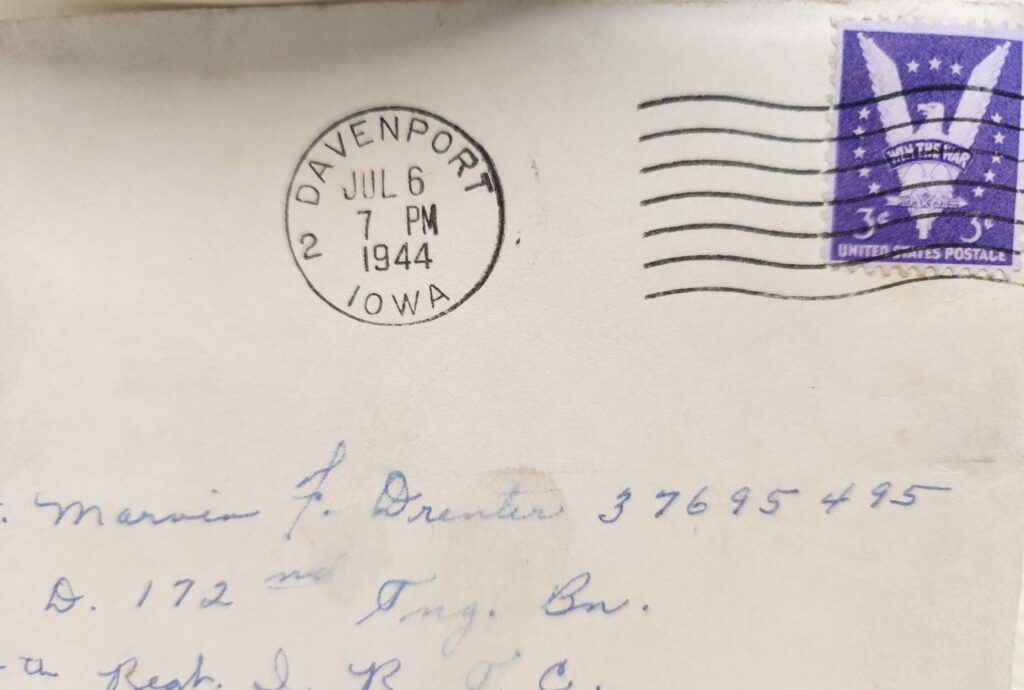 DAVENPORT
JUL 6
7 PM
1944
2
IOWA
WIN THE WAR
3¢ 3¢
UNITED STATES POSTAGE
. Marvin F. Drenter 37695495
D. 172nd Tng. Bn.
th Regt. I. R. T. C.